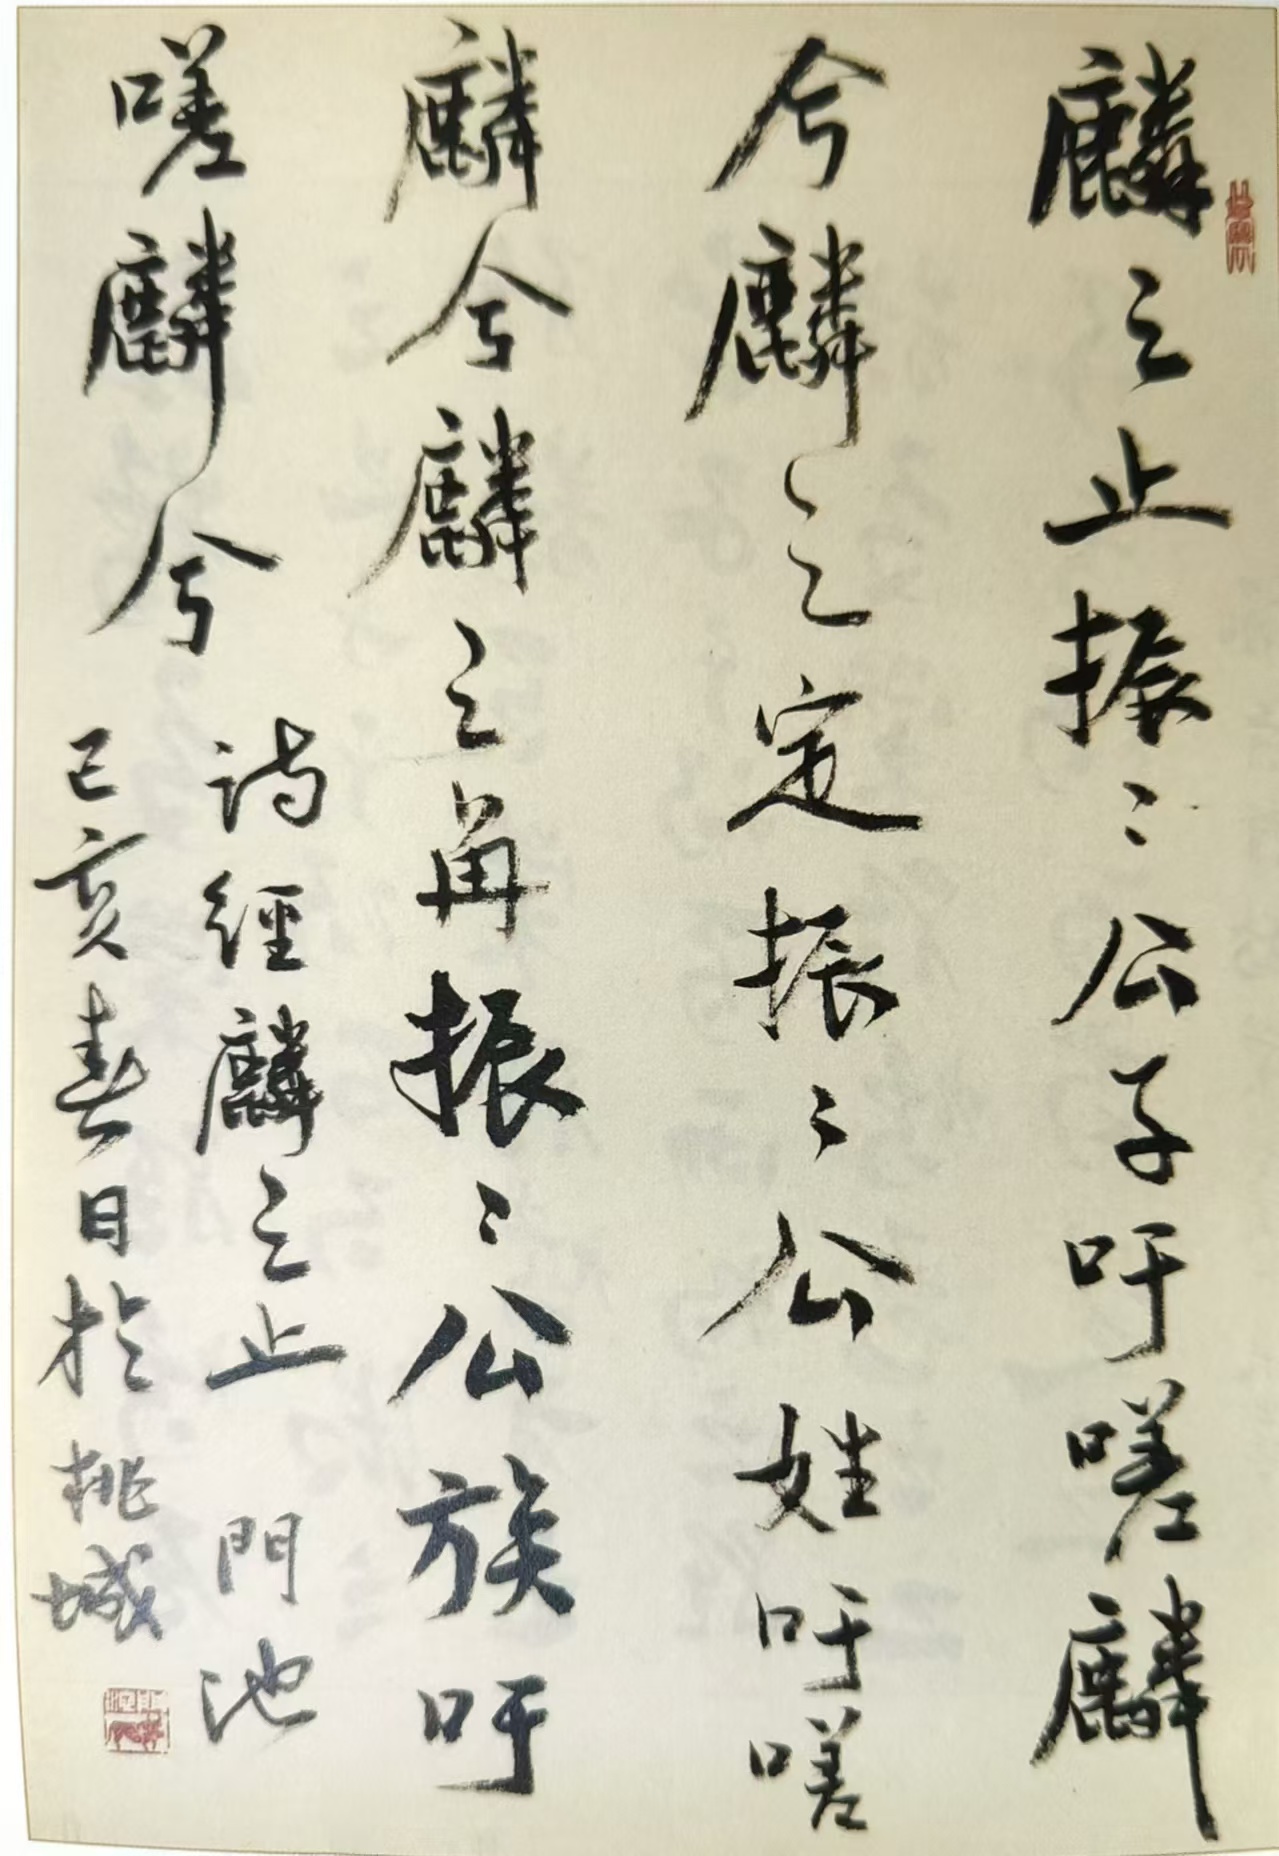 麟之止振〻公子吁嗟麟
兮麟之定振〻公姓吁嗟
麟兮麟之角振〻公族吁
嗟麟兮
詩經麟之止 門池
己亥春日於桃城